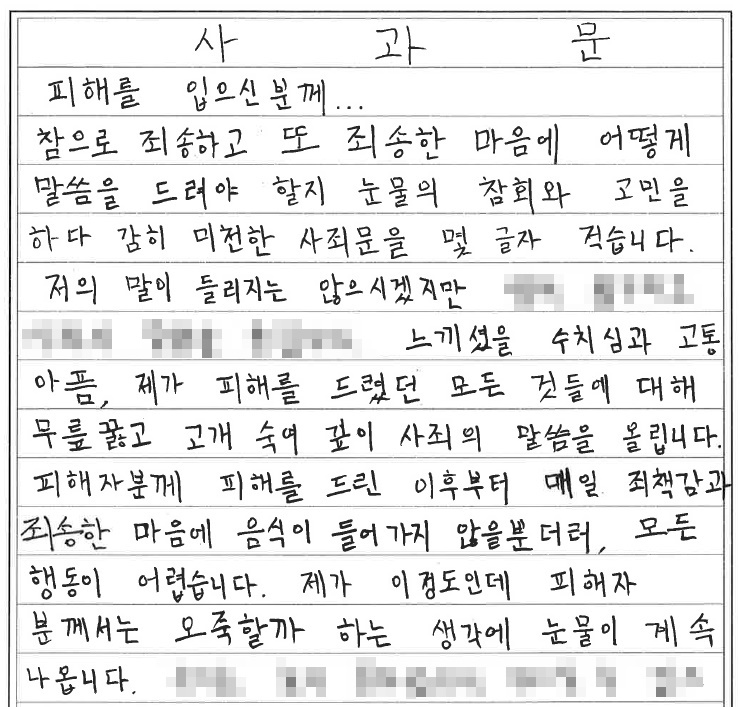 사 과 문
피해를 입으신분께...
참으로 죄송하고 또 죄송한 마음에 어떻게
말씀을 드려야 할지 눈물의 참회와 고민을
하다 감히 미천한 사죄문을 몇 글자 적습니다.
저의 말이 들리지는 않으시겠지만
느끼셨을 수치심과 고통
아픔, 제가 피해를 드렸던 모든 것들에 대해
무릎꿇고 고개 숙여 깊이 사죄의 말씀을 올립니다.
피해자분께 피해를 드린 이후부터 매일 죄책감과
죄송한 마음에 음식이 들어가지 않을뿐더러, 모든
행동이 어렵습니다. 제가 이정도인데 피해자
분께서는 오죽할까 하는 생각에 눈물이 계속
나옵니다.